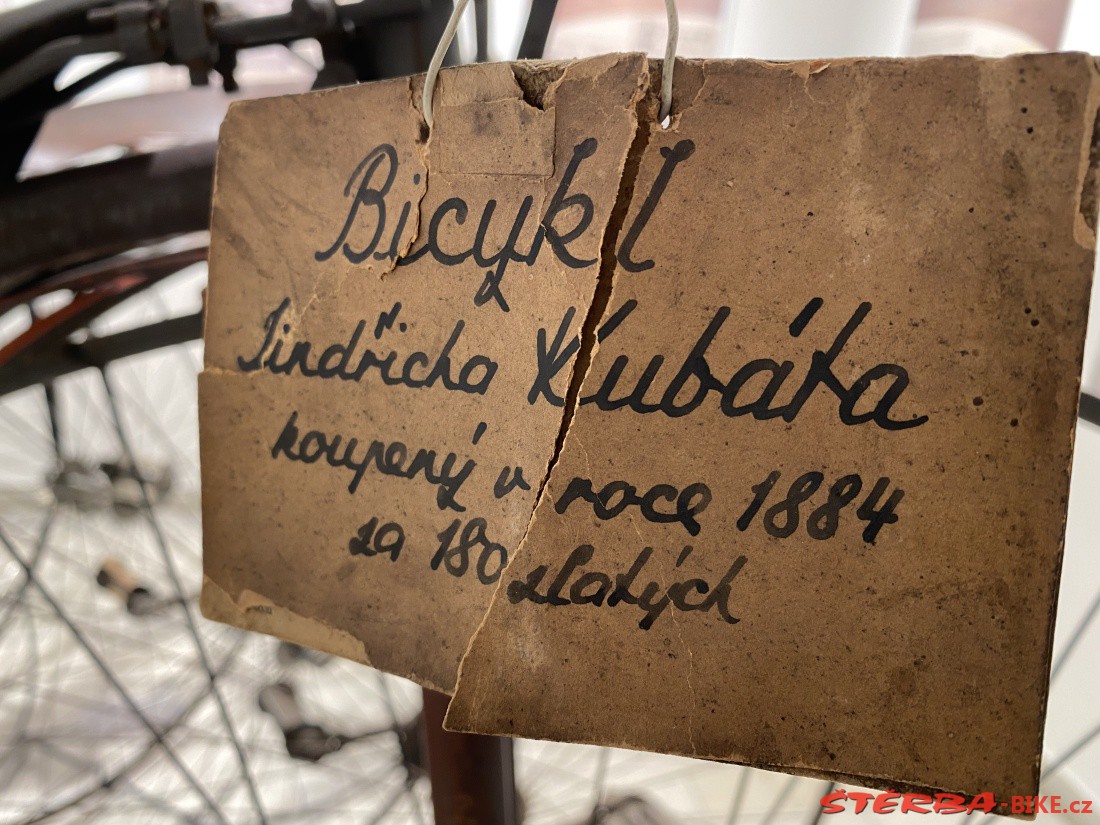 Bicykl
Jindřicha Kubáta
koupený v roce 1884
za 180 zlatých
ŠTERBA-BIKE.cz